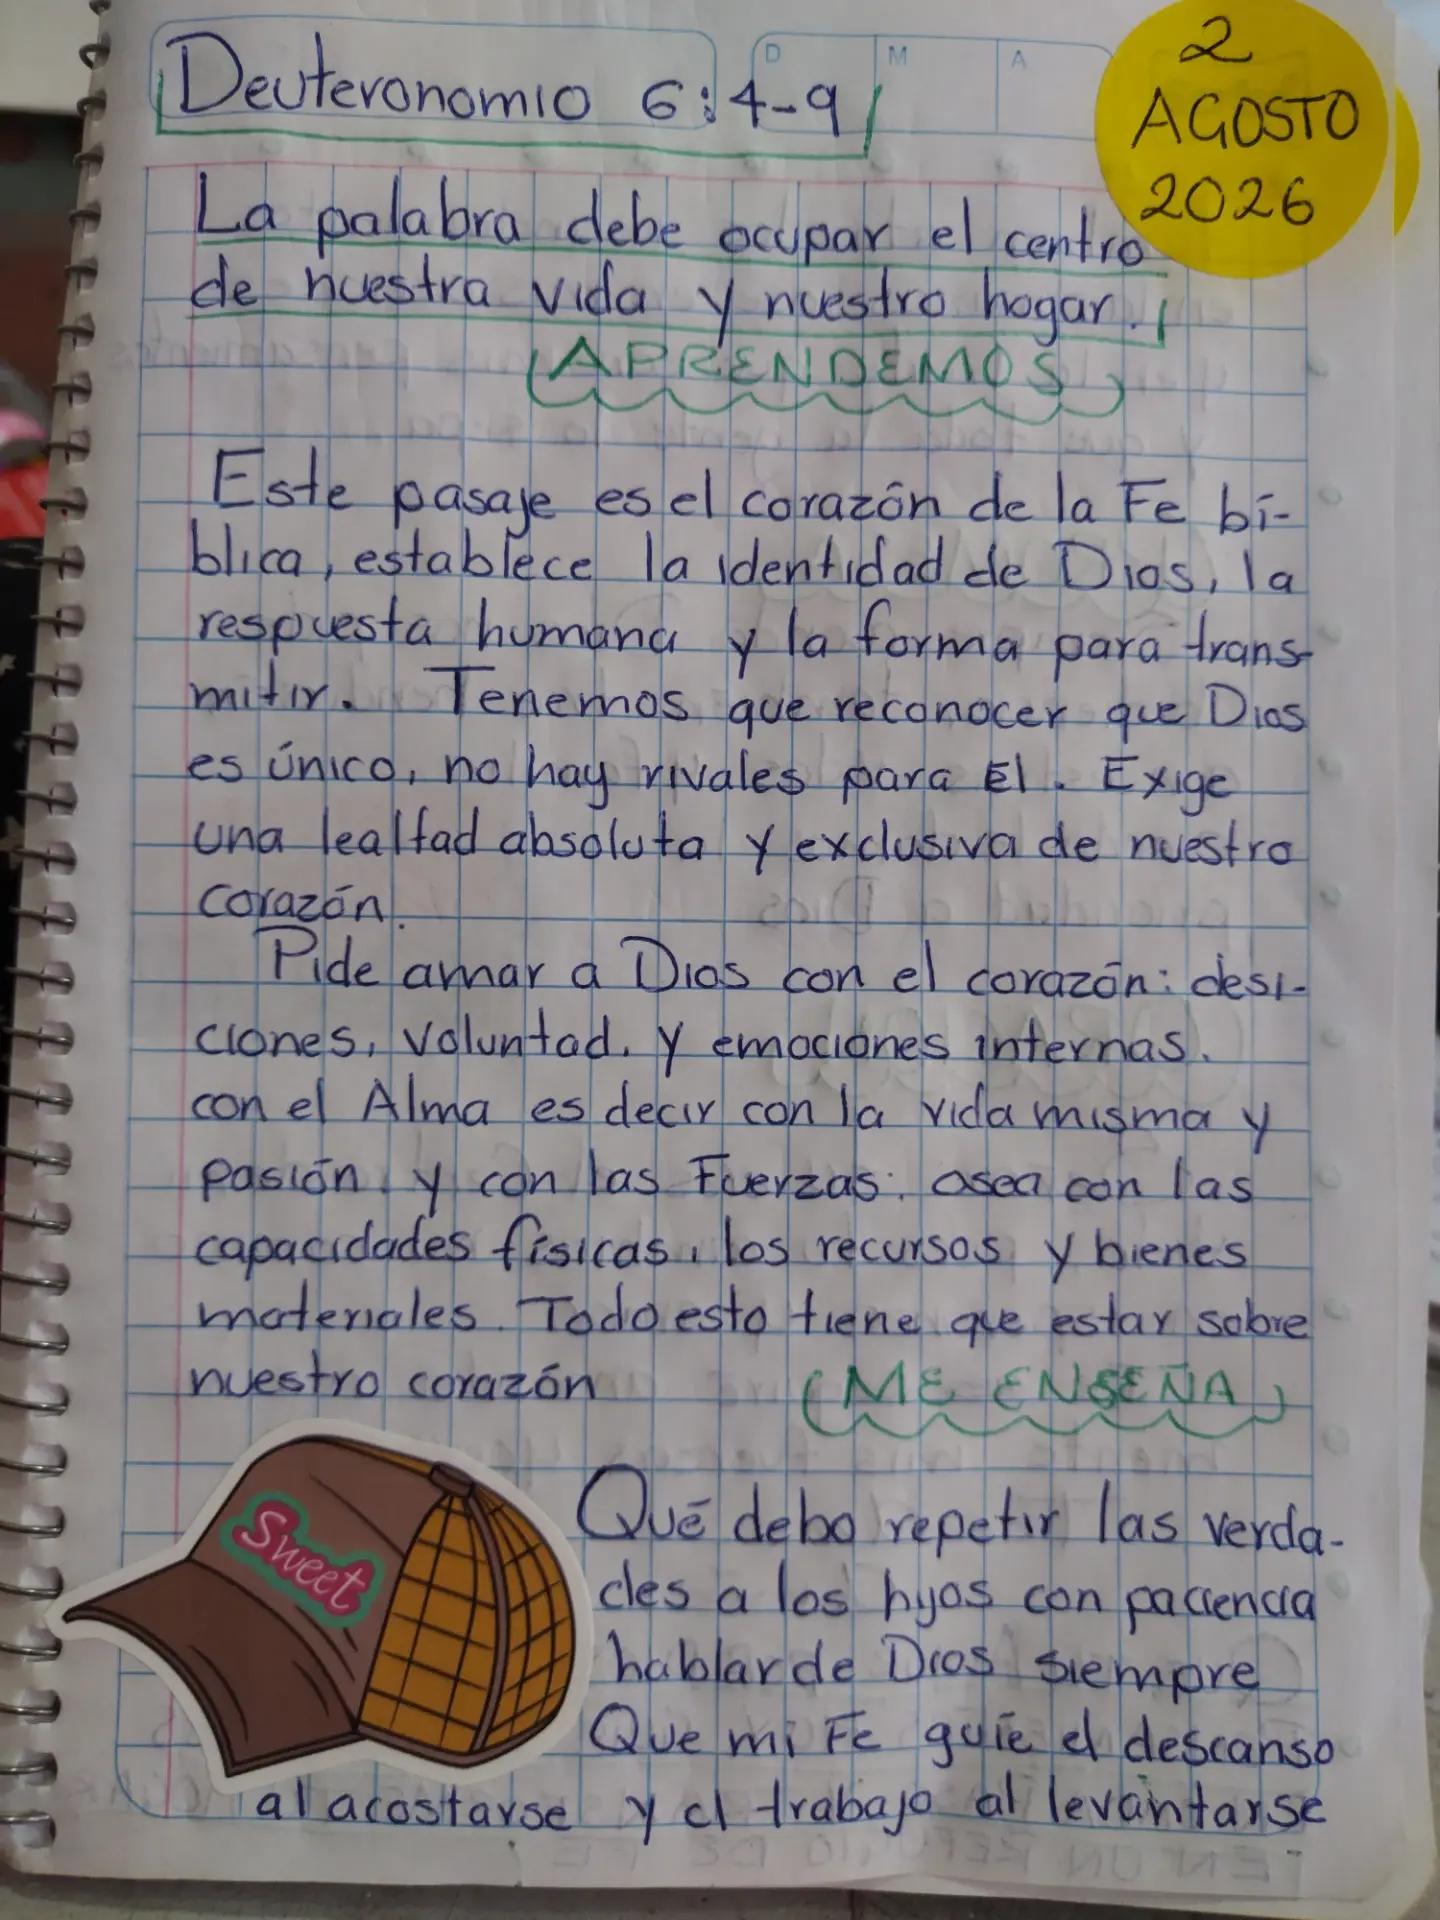 Deuteronomio 6:4-9
D M A
2
AGOSTO
2026
La palabra debe ocupar el centro
de nuestra vida y nuestro hogar.
APRENDEMOS
Este pasaje es el corazón de la Fe bí-
blica, establece la identidad de Dios, la
respuesta humana y la forma para trans-
mitir. Tenemos que reconocer que Dios
es único, no hay rivales para Él. Exige
una lealtad absoluta y exclusiva de nuestro
corazón.
Pide amar a Dios con el corazón: desi-
ciones, voluntad, y emociones internas.
con el Alma es decir con la vida misma y
pasión, y con las Fuerzas: osea con las
capacidades físicas, los recursos y bienes
materiales. Todo esto tiene que estar sobre
nuestro corazón
ME ENSEÑA
Sweet
Qué debo repetir las verda-
des a los hijos con paciencia
hablar de Dios siempre
Que mi Fe guíe el descanso
al acostarse y el trabajo al levantarse